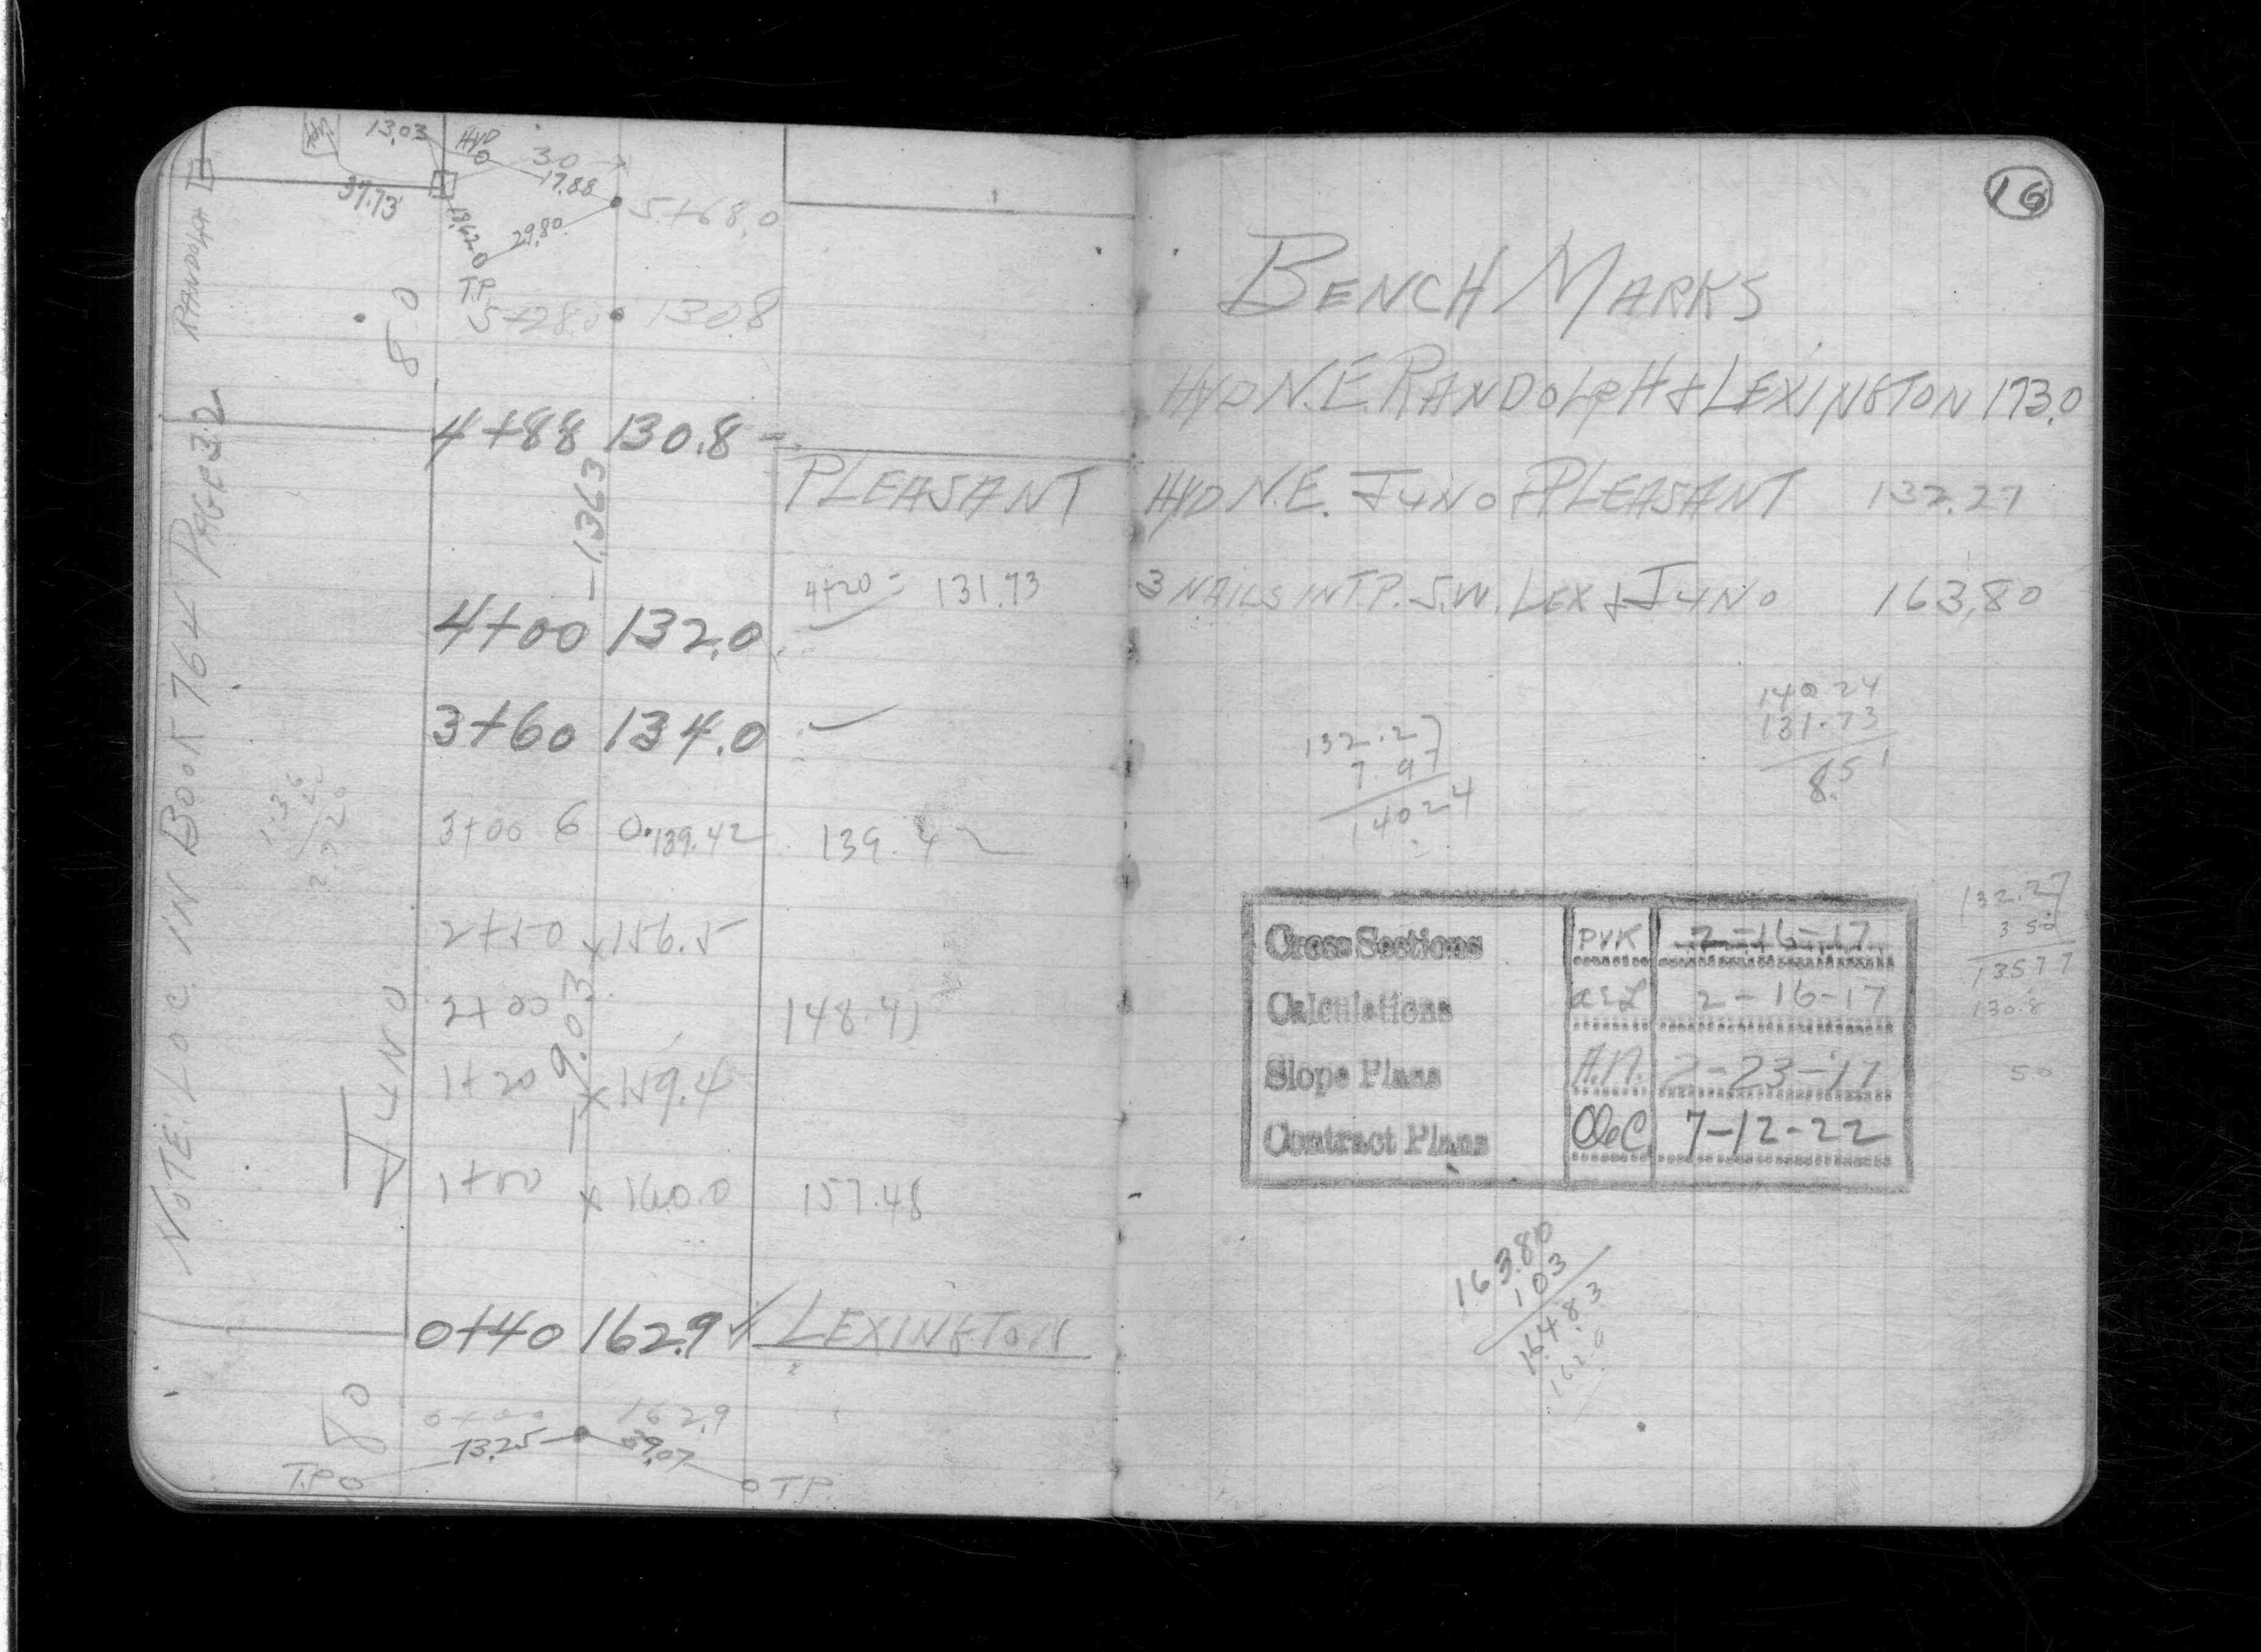 13.03
HYD
30
17.88
37.73
13.62
29.80
5+68.0
RANDOLPH
T.P.
80
5+28.0 130.8
4+88 130.8
PLEASANT
-13.63
4+20 = 131.73
4+00 132.0
3+60 134.0
3+00 6 0.139.42 139.42
2+50 x156.5
2+00 148.41
-9.03
1+20 x159.4
JUNO
1+00 x160.0 157.48
0+40 162.9 LEXINGTON
80
0+00 162.9
73.25 39.07
T.P. T.P.
NOTE: LOC. IN BOOK 764 PAGE 32
16
BENCH MARKS
HYD N.E. RANDOLPH & LEXINGTON 173.0
HYD N.E. JUNO & PLEASANT 132.27
3 NAILS IN T.P. S.W. LEX & JUNO 163.80
132.27
7.97
140.24
140.24
131.73
8.51
132.27
3.50
135.77
130.8
5.0
Cross Sections PVK 2-16-17
Calculations 2-16-17
Slope Plans A.N. 2-23-17
Contract Plans OeC 7-12-22
163.80
103
164.83
162.9